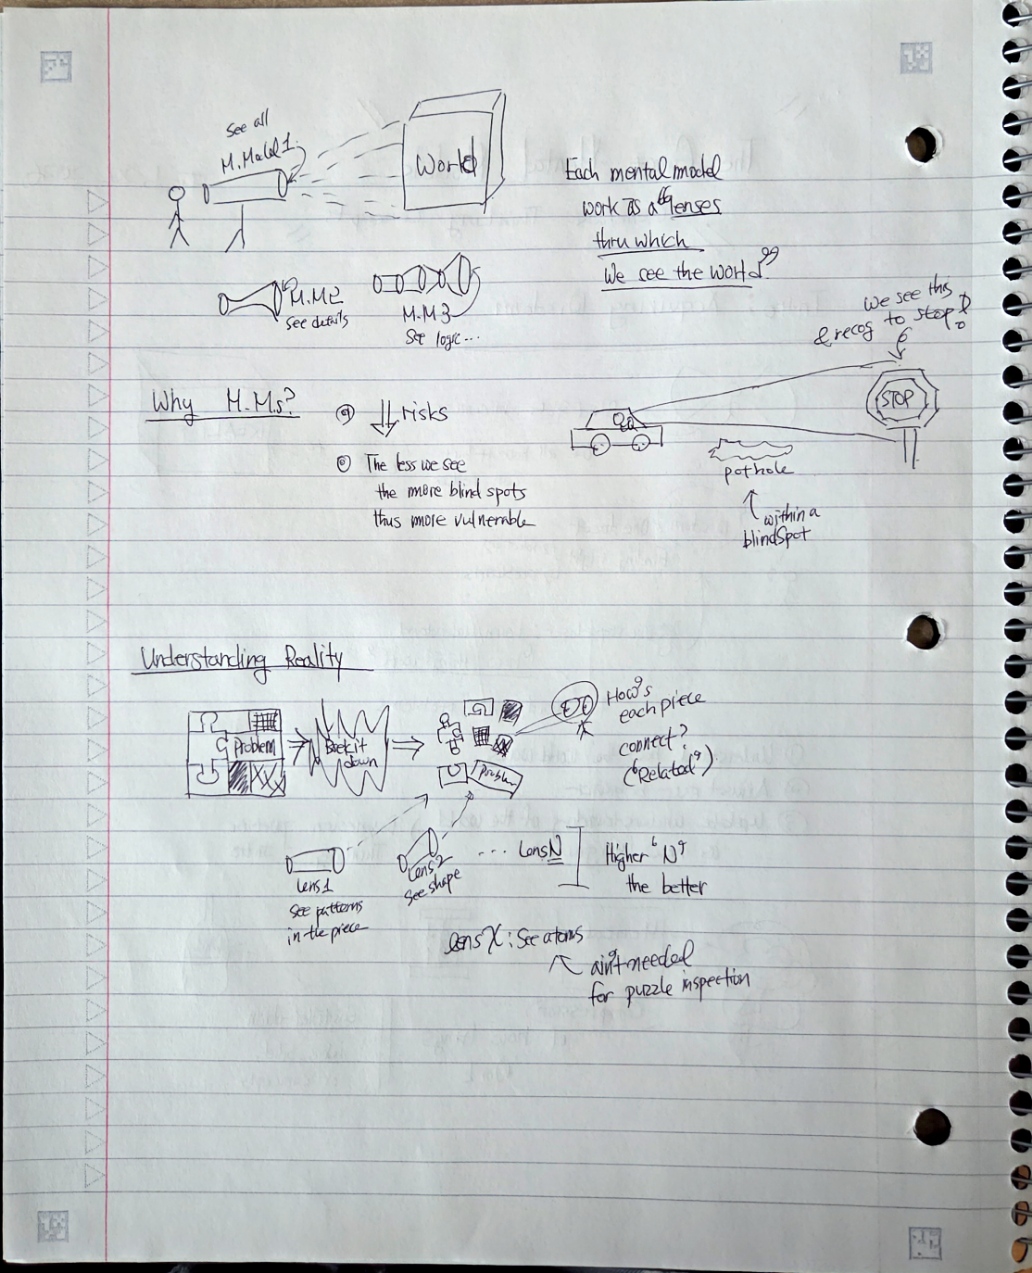 See all
M.Model 1.
World
Each mental model
work as a "lenses
thru which
We see the world"
M.M2
See details
M.M3
See logic...
We see this
& recog to stop!
STOP
Why M.Ms?
↓ risks
The less we see
the more blind spots
thus more vulnerable
pothole
within a
blindspot
Understanding Reality
Problem
Break it
down
Problem
How's
each piece
connect?
("Related")
Lens1
See patterns
in the piece
Lens2
See shape
... Lens N
Higher 'N'
the better
lens X : See atoms
ain't needed
for puzzle inspection